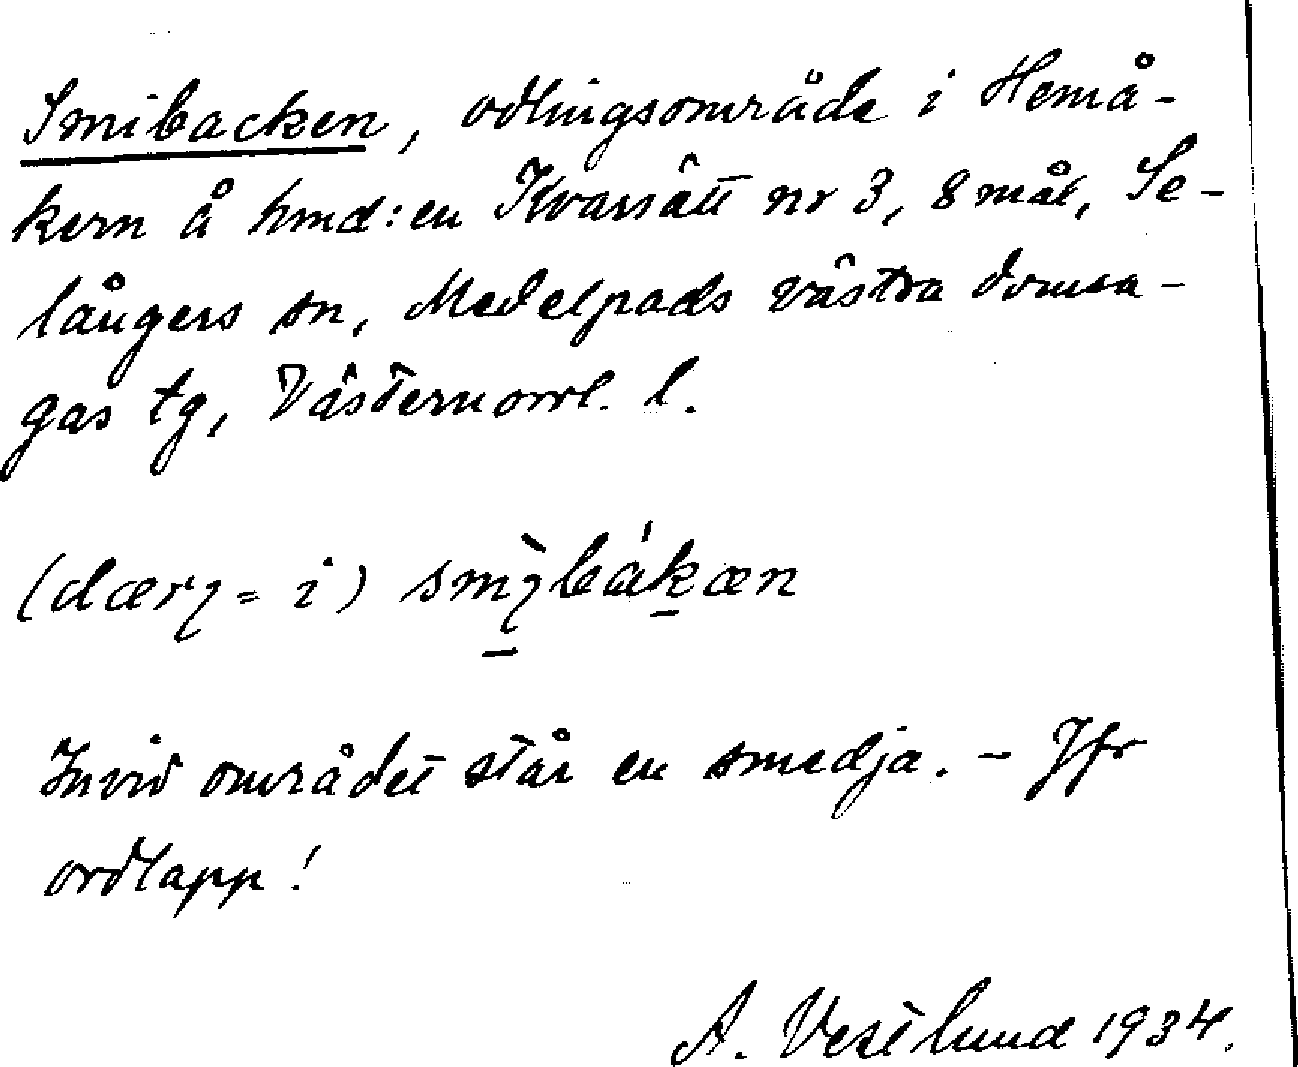 Smibacken, odlingsområde i Hemå-
kern å hmd:en Kvarsätt nr 3, 8 mål, Se-
långers sn, Medelpads västra domsa-
gas tg, Västernorrl. l.
(dærɿ = i)
Invid området står en smedja. - Jfr
ordlapp!
A. Vestlund 1934.